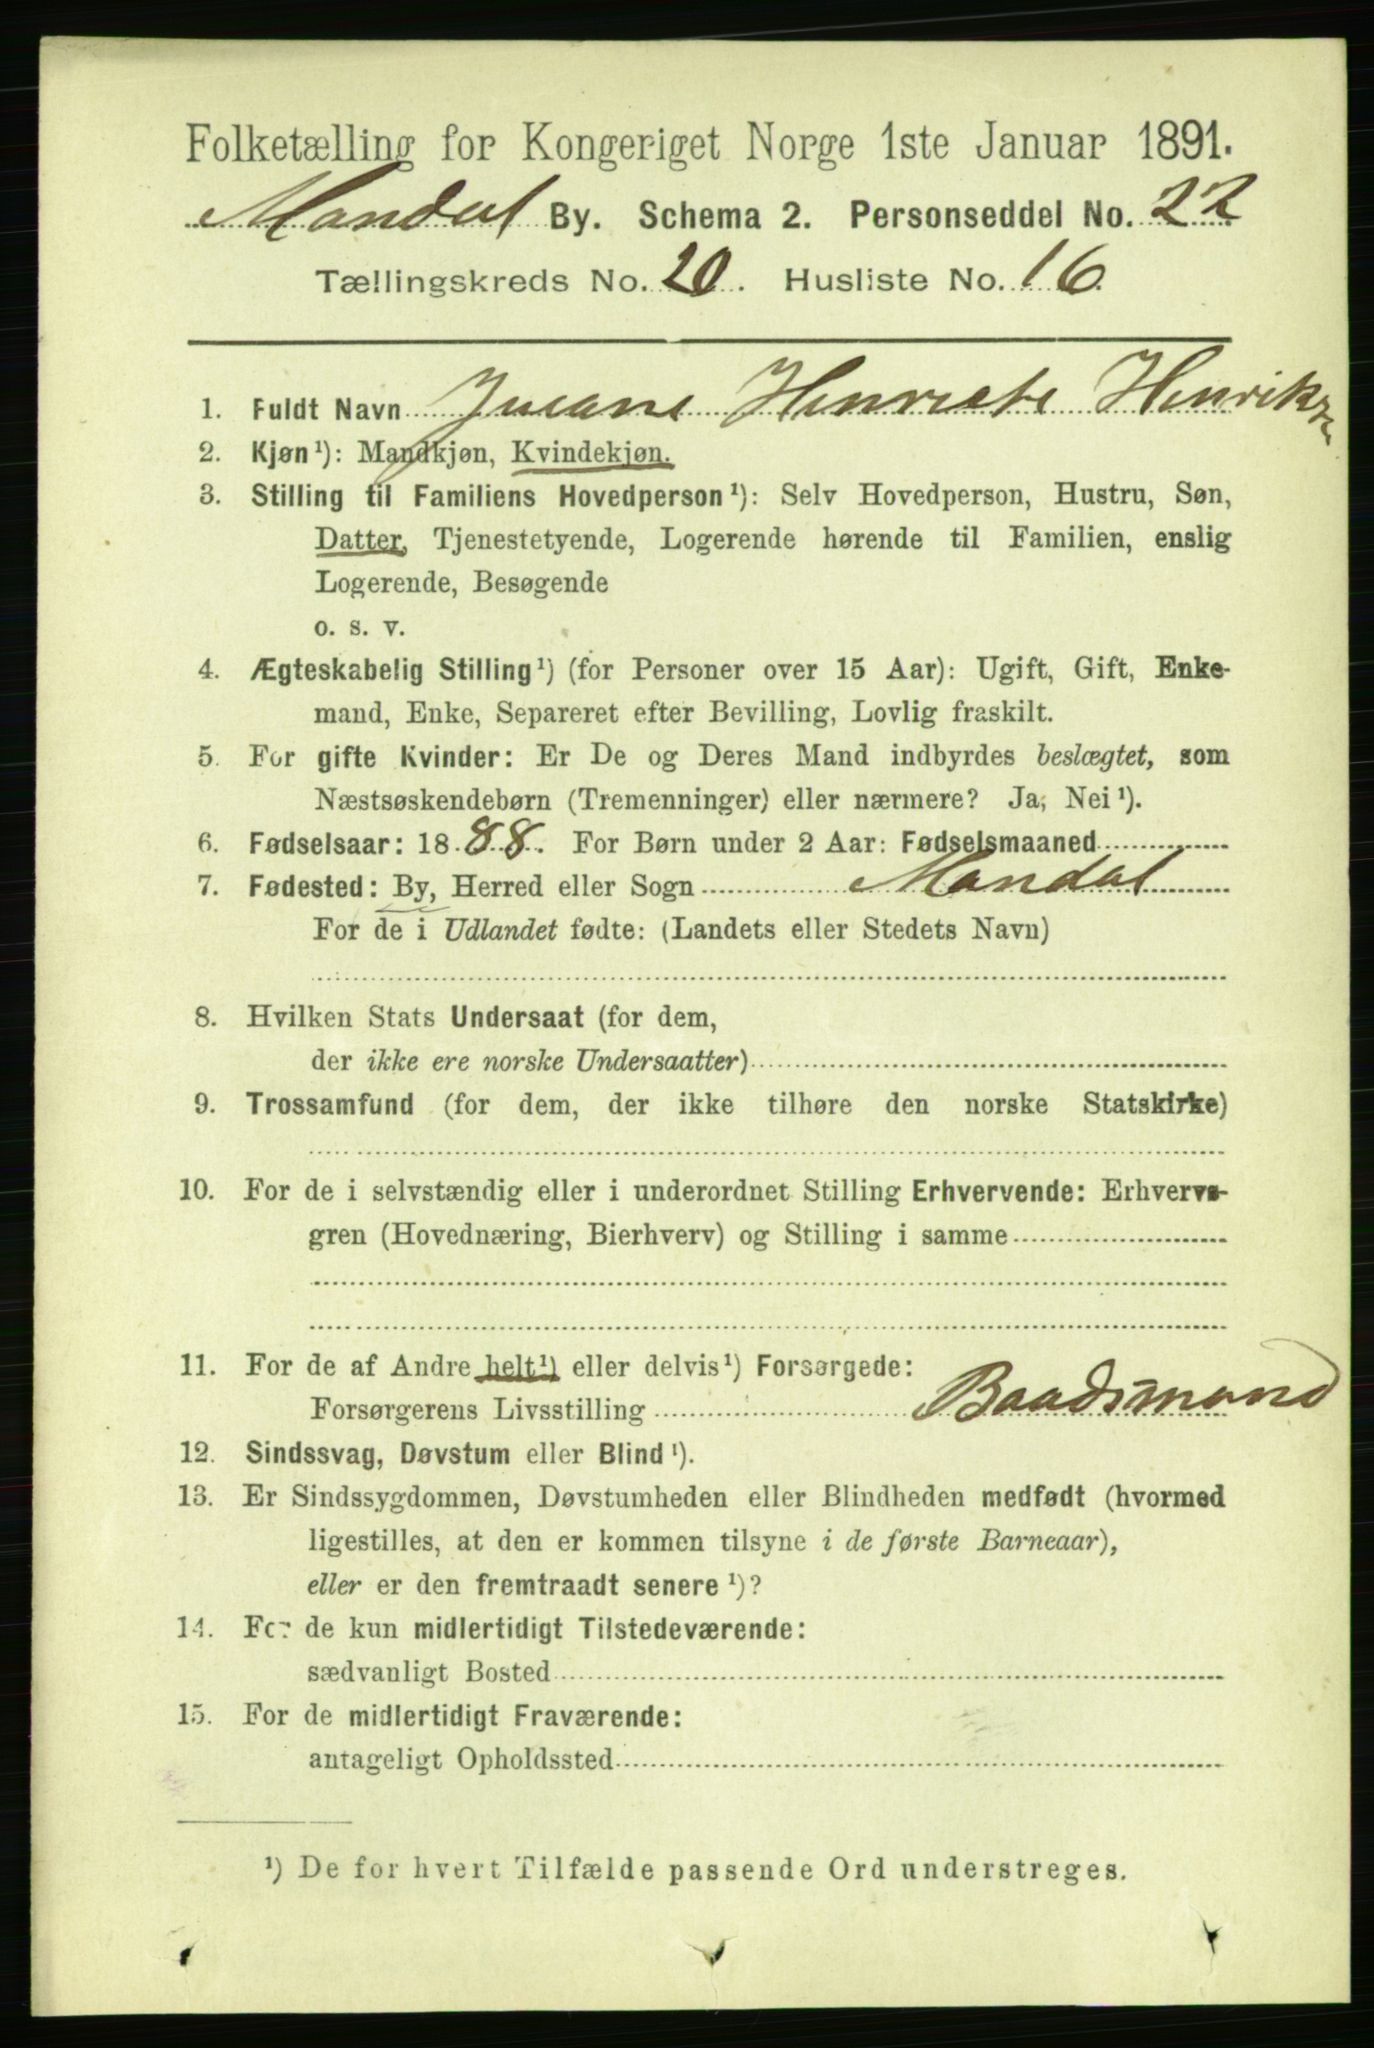 Folketælling for Kongeriget Norge 1ste Januar 1891.
Mandal By. Schema 2. Personseddel No. 22
Tællingskreds No. 20. Husliste No. 16
1. Fuldt Navn Henriete Henriks
2. Kjøn¹): Mandkjøn, Kvindekjøn.
3. Stilling til Familiens Hovedperson¹): Selv Hovedperson, Hustru, Søn,
Datter, Tjenestetyende, Logerende hørende til Familien, enslig
Logerende, Besøgende
o. s. v.
4. Ægteskabelig Stilling¹) (for Personer over 15 Aar): Ugift, Gift, Enke-
mand, Enke, Separeret efter Bevilling, Lovlig fraskilt.
5. For gifte Kvinder: Er De og Deres Mand indbyrdes beslægtet, som
Næstsøskendebørn (Tremenninger) eller nærmere? Ja, Nei¹).
6. Fødselsaar: 1888. For Børn under 2 Aar: Fødselsmaaned
7. Fødested: By, Herred eller Sogn Mandal
For de i Udlandet fødte: (Landets eller Stedets Navn)
8. Hvilken Stats Undersaat (for dem,
der ikke ere norske Undersaatter)
9. Trossamfund (for dem, der ikke tilhøre den norske Statskirke)
10. For de i selvstændig eller i underordnet Stilling Erhvervende: Erhvervs-
gren (Hovednæring, Bierhverv) og Stilling i samme
11. For de af Andre helt¹) eller delvis¹) Forsørgede:
Forsørgerens Livsstilling Baadsmand
12. Sindssvag, Døvstum eller Blind¹).
13. Er Sindssygdommen, Døvstumheden eller Blindheden medfødt (hvormed
ligestilles, at den er kommen tilsyne i de første Barneaar),
eller er den fremtraadt senere¹)?
14. For de kun midlertidigt Tilstedeværende:
sædvanligt Bosted
15. For de midlertidigt Fraværende:
antageligt Opholdssted
¹) De for hvert Tilfælde passende Ord understreges.